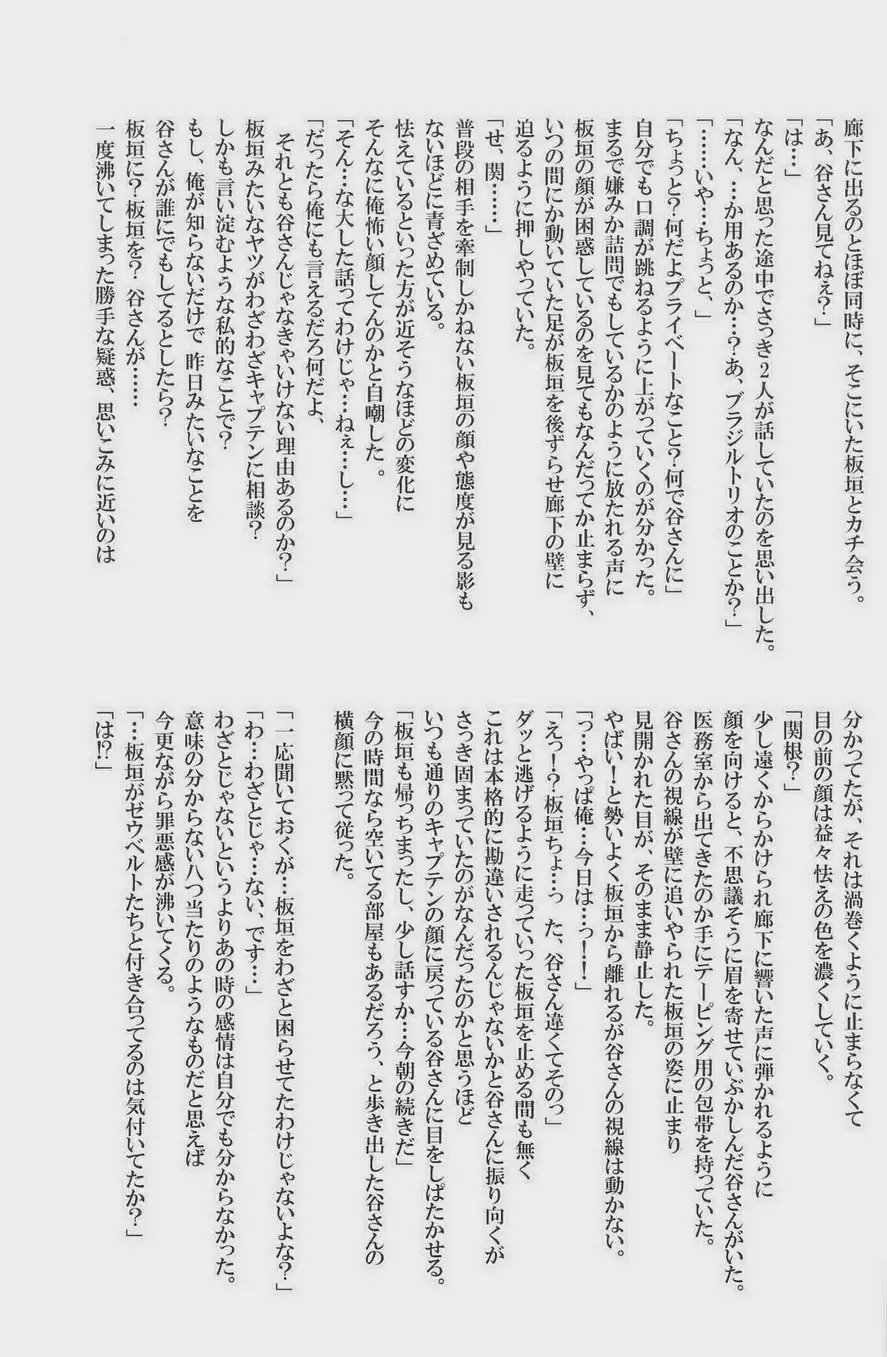 廊下に出るのとほぼ同時に、そこにいた板垣とカチ会う。
「あ、谷さん見てねぇ?」
「は…」
なんだと思った途中でさっき2人が話していたのを思い出した。
「なん、…か用あるのか…?あ、ブラジルトリオのことか?」
「……いや…ちょっと、」
「ちょっと?何だよプライベートなこと?何で谷さんに」
自分でも口調が跳ねるように上がっていくのが分かった。
まるで嫌みか詰問でもしているかのように放たれる声に
板垣の顔が困惑しているのを見てもなんだってか止まらず、
いつの間にか動いていた足が板垣を後ずらせ廊下の壁に
迫るように押しやっていた。
「せ、関……」
普段の相手を牽制しかねない板垣の顔や態度が見る影も
ないほどに青ざめている。
怯えているといった方が近そうなほどの変化に
そんなに俺怖い顔してんのかと自嘲した。
「そん…な大した話ってわけじゃ…ねぇ…し…」
「だったら俺にも言えるだろ何だよ、
それとも谷さんじゃなきゃいけない理由あるのか?」
板垣みたいなヤツがわざわざキャプテンに相談?
しかも言い淀むような私的なことで?
もし、俺が知らないだけで 昨日みたいなことを
谷さんが誰にでもしてるとしたら?
板垣に?板垣を? 谷さんが……
一度沸いてしまった勝手な疑惑、思いこみに近いのは
分かってたが、それは渦巻くように止まらなくて
目の前の顔は益々怯えの色を濃くしていく。
「関根?」
少し遠くからかけられ廊下に響いた声に弾かれるように
顔を向けると、不思議そうに眉を寄せていぶかしんだ谷さんがいた。
医務室から出てきたのか手にテーピング用の包帯を持っていた。
谷さんの視線が壁に追いやられた板垣の姿に止まり
見開かれた目が、そのまま静止した。
やばい!と勢いよく板垣から離れるが谷さんの視線は動かない。
「っ…やっぱ俺…今日は…っ!!」
「えっ!?板垣ちょ…っ た、谷さん違くてそのっ」
ダッと逃げるように走っていった板垣を止める間も無く
これは本格的に勘違いされるんじゃないかと谷さんに振り向くが
さっき固まっていたのがなんだったのかと思うほど
いつも通りのキャプテンの顔に戻っている谷さんに目をしばたかせる。
「板垣も帰っちまったし、少し話すか…今朝の続きだ」
今の時間なら空いてる部屋もあるだろう、と歩き出した谷さんの
横顔に黙って従った。
「一応聞いておくが…板垣をわざと困らせてたわけじゃないよな?」
「わ…わざとじゃ…ない、です…」
わざとじゃないというよりあの時の感情は自分でも分からなかった。
意味の分からない八つ当たりのようなものだと思えば
今更ながら罪悪感が沸いてくる。
「…板垣がゼウベルトたちと付き合ってるのは気付いてたか?」
「は!?」